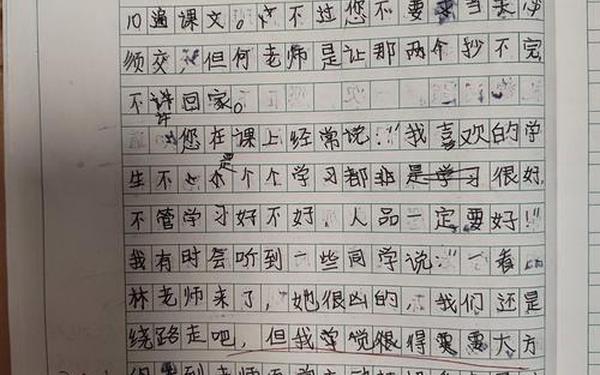 10遍课文。不过您不要求当天必
须交，但何老师是让那两个抄不完
不许回家。
您在课上经常说："我喜欢的学
生不是个个学习都很好，
不管学习好不好，人品一定要好！"
我有时会听到一些同学说："一看
林老师来了，她很凶的，我们还是
绕路走吧，但我学觉很得要要大方
到老师